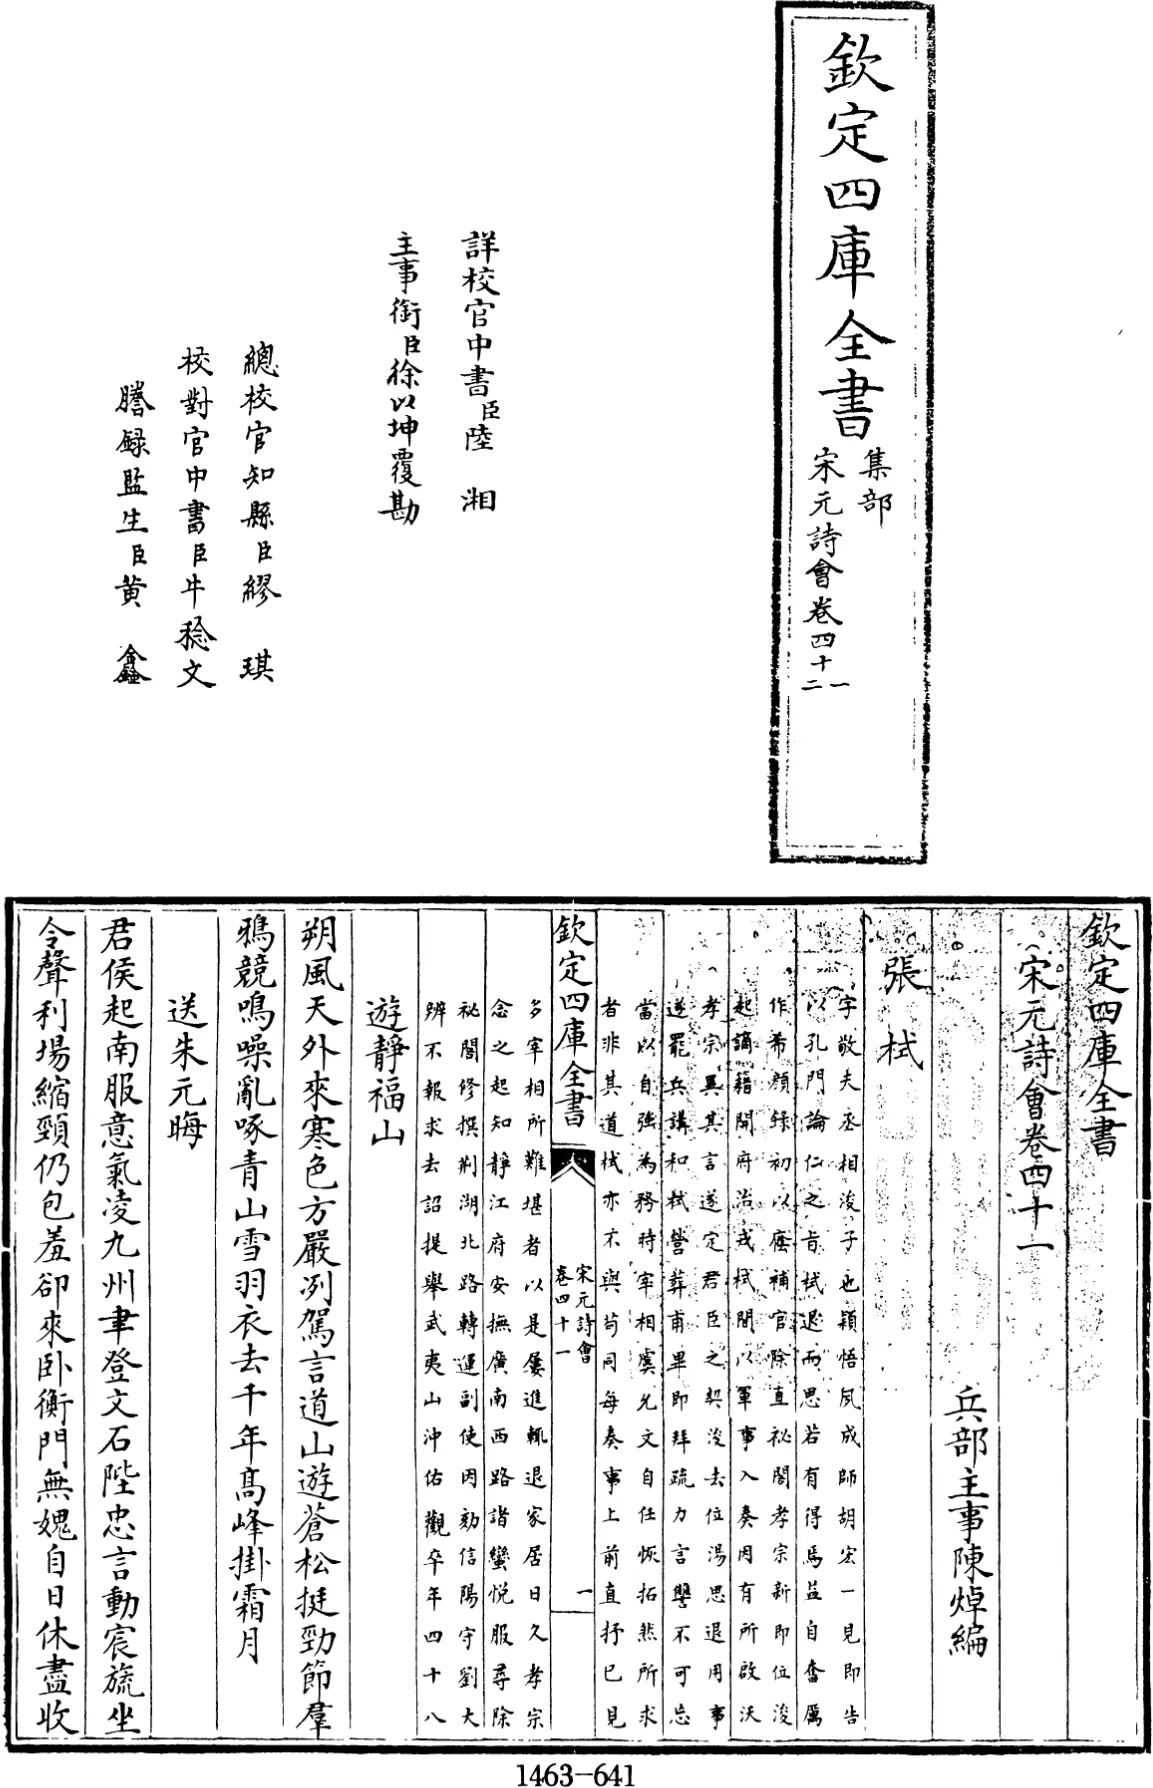 欽定四庫全書
集部
宋元詩會卷四十一
二
詳校官中書臣陸湘
主事銜臣徐以坤覆勘
總校官知縣臣繆琪
校對官中書臣牛稔文
謄録監生臣黄鑫
欽定四庫全書
宋元詩會卷四十一
兵部主事陳焯編
張栻
字敬夫丞相浚子也穎悟夙成師胡宏一見即告
以孔門論仁之旨栻退而思若有得焉益自奮厲
作希顔録初以廕補官除直祕閣孝宗新即位浚
起謫籍開府治戎栻間以軍事入奏因有所啟沃
孝宗異其言遂定君臣之契浚去位湯思退用事
遂罷兵講和栻營葬甫畢即拜疏力言讐不可忘
當以自強為務時宰相虞允文自任恢拓然所求
者非其道栻亦不與苟同每奏事上前直抒已見
欽定四庫全書
宋元詩會
卷四十一
一
多宰相所難堪者以是屢進輒退家居日久孝宗
念之起知靜江府安撫廣南西路諸蠻悦服尋除
祕閣修撰荆湖北路轉運副使因劾信陽守劉大
辨不報求去詔提舉武夷山沖佑觀卒年四十八
遊靜福山
朔風天外來寒色方嚴冽駕言道山遊蒼松挺勁節羣
鴉競鳴噪亂啄青山雪羽衣去千年高峰掛霜月
送朱元晦
君侯起南服意氣凌九州聿登文石陛忠言動宸旒坐
令聲利場縮頸仍包羞卻來卧衡門無媿自日休盡收
1463-641